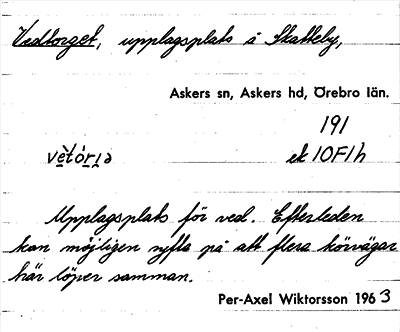 Vedtorget, upplagsplats å Skatteby,
Askers sn, Askers hd, Örebro län.
191
vètórja ek 10F1h
Upplagsplats för ved. Efterleden
kan möjligen syfta på att flera körvägar
här löper samman.
Per-Axel Wiktorsson 1963